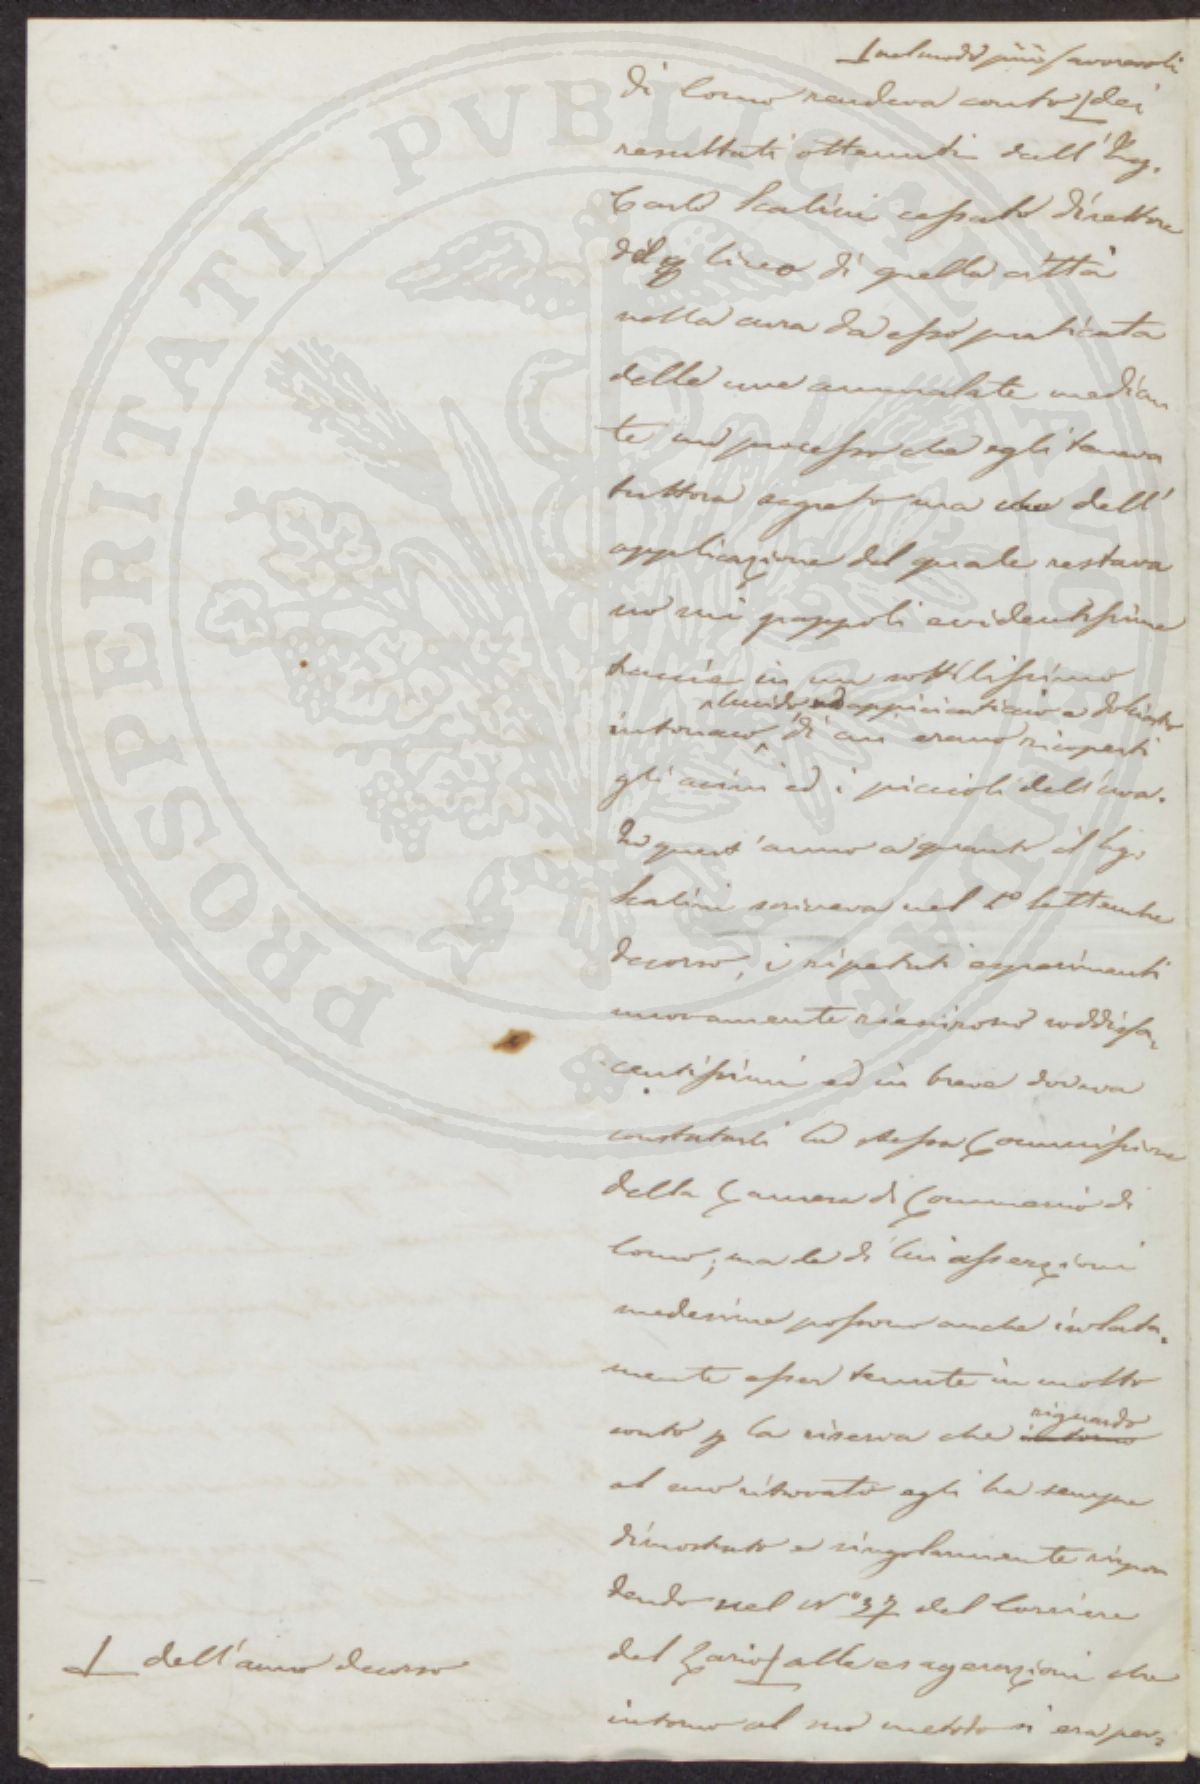 nel modo più favorevole
di Como rendeva conto dei
resultati ottenuti dall'Ing.
Carlo Scalini cessato Direttore
del Liceo di quella città
nella cura da esso praticata
delle uve ammalate median
te un processo che egli teneva
tuttora segreto ma che dell'
applicazione del quale restava
no nei grappoli evidentissime
traccie in un sottilissimo
lucido ed appiciaticcio e
intonaco di cui erano ricoperti
gli acini ed i piccioli dell'uva.
In quest'anno a quanto il Sig.
Scalini scriveva nel 1º Settembre
decorso, i ripetuti esperimenti
nuovamente riescirono soddisfa
centissimi ed in breve doveva
constatarli la stessa Commissione
della Camera di Commercio di
Como; ma le di lui asserzioni
medesime possono anche isolata
mente esser tenute in molto
conto p la riserva che intorno riguardo
al suo ritrovato egli ha sempre
dimostrato e singolarmente rispon
dendo nel Nº 37 del Corriere
del Lario alle esagerazioni che
intorno al suo metodo si era per=
dell'anno decorso